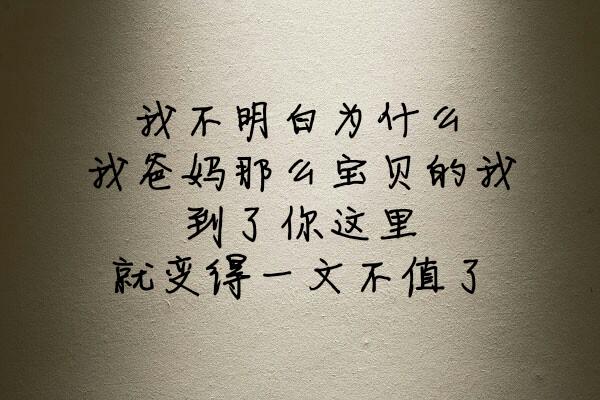 我不明白为什么
我爸妈那么宝贝的我
到了你这里
就变得一文不值了